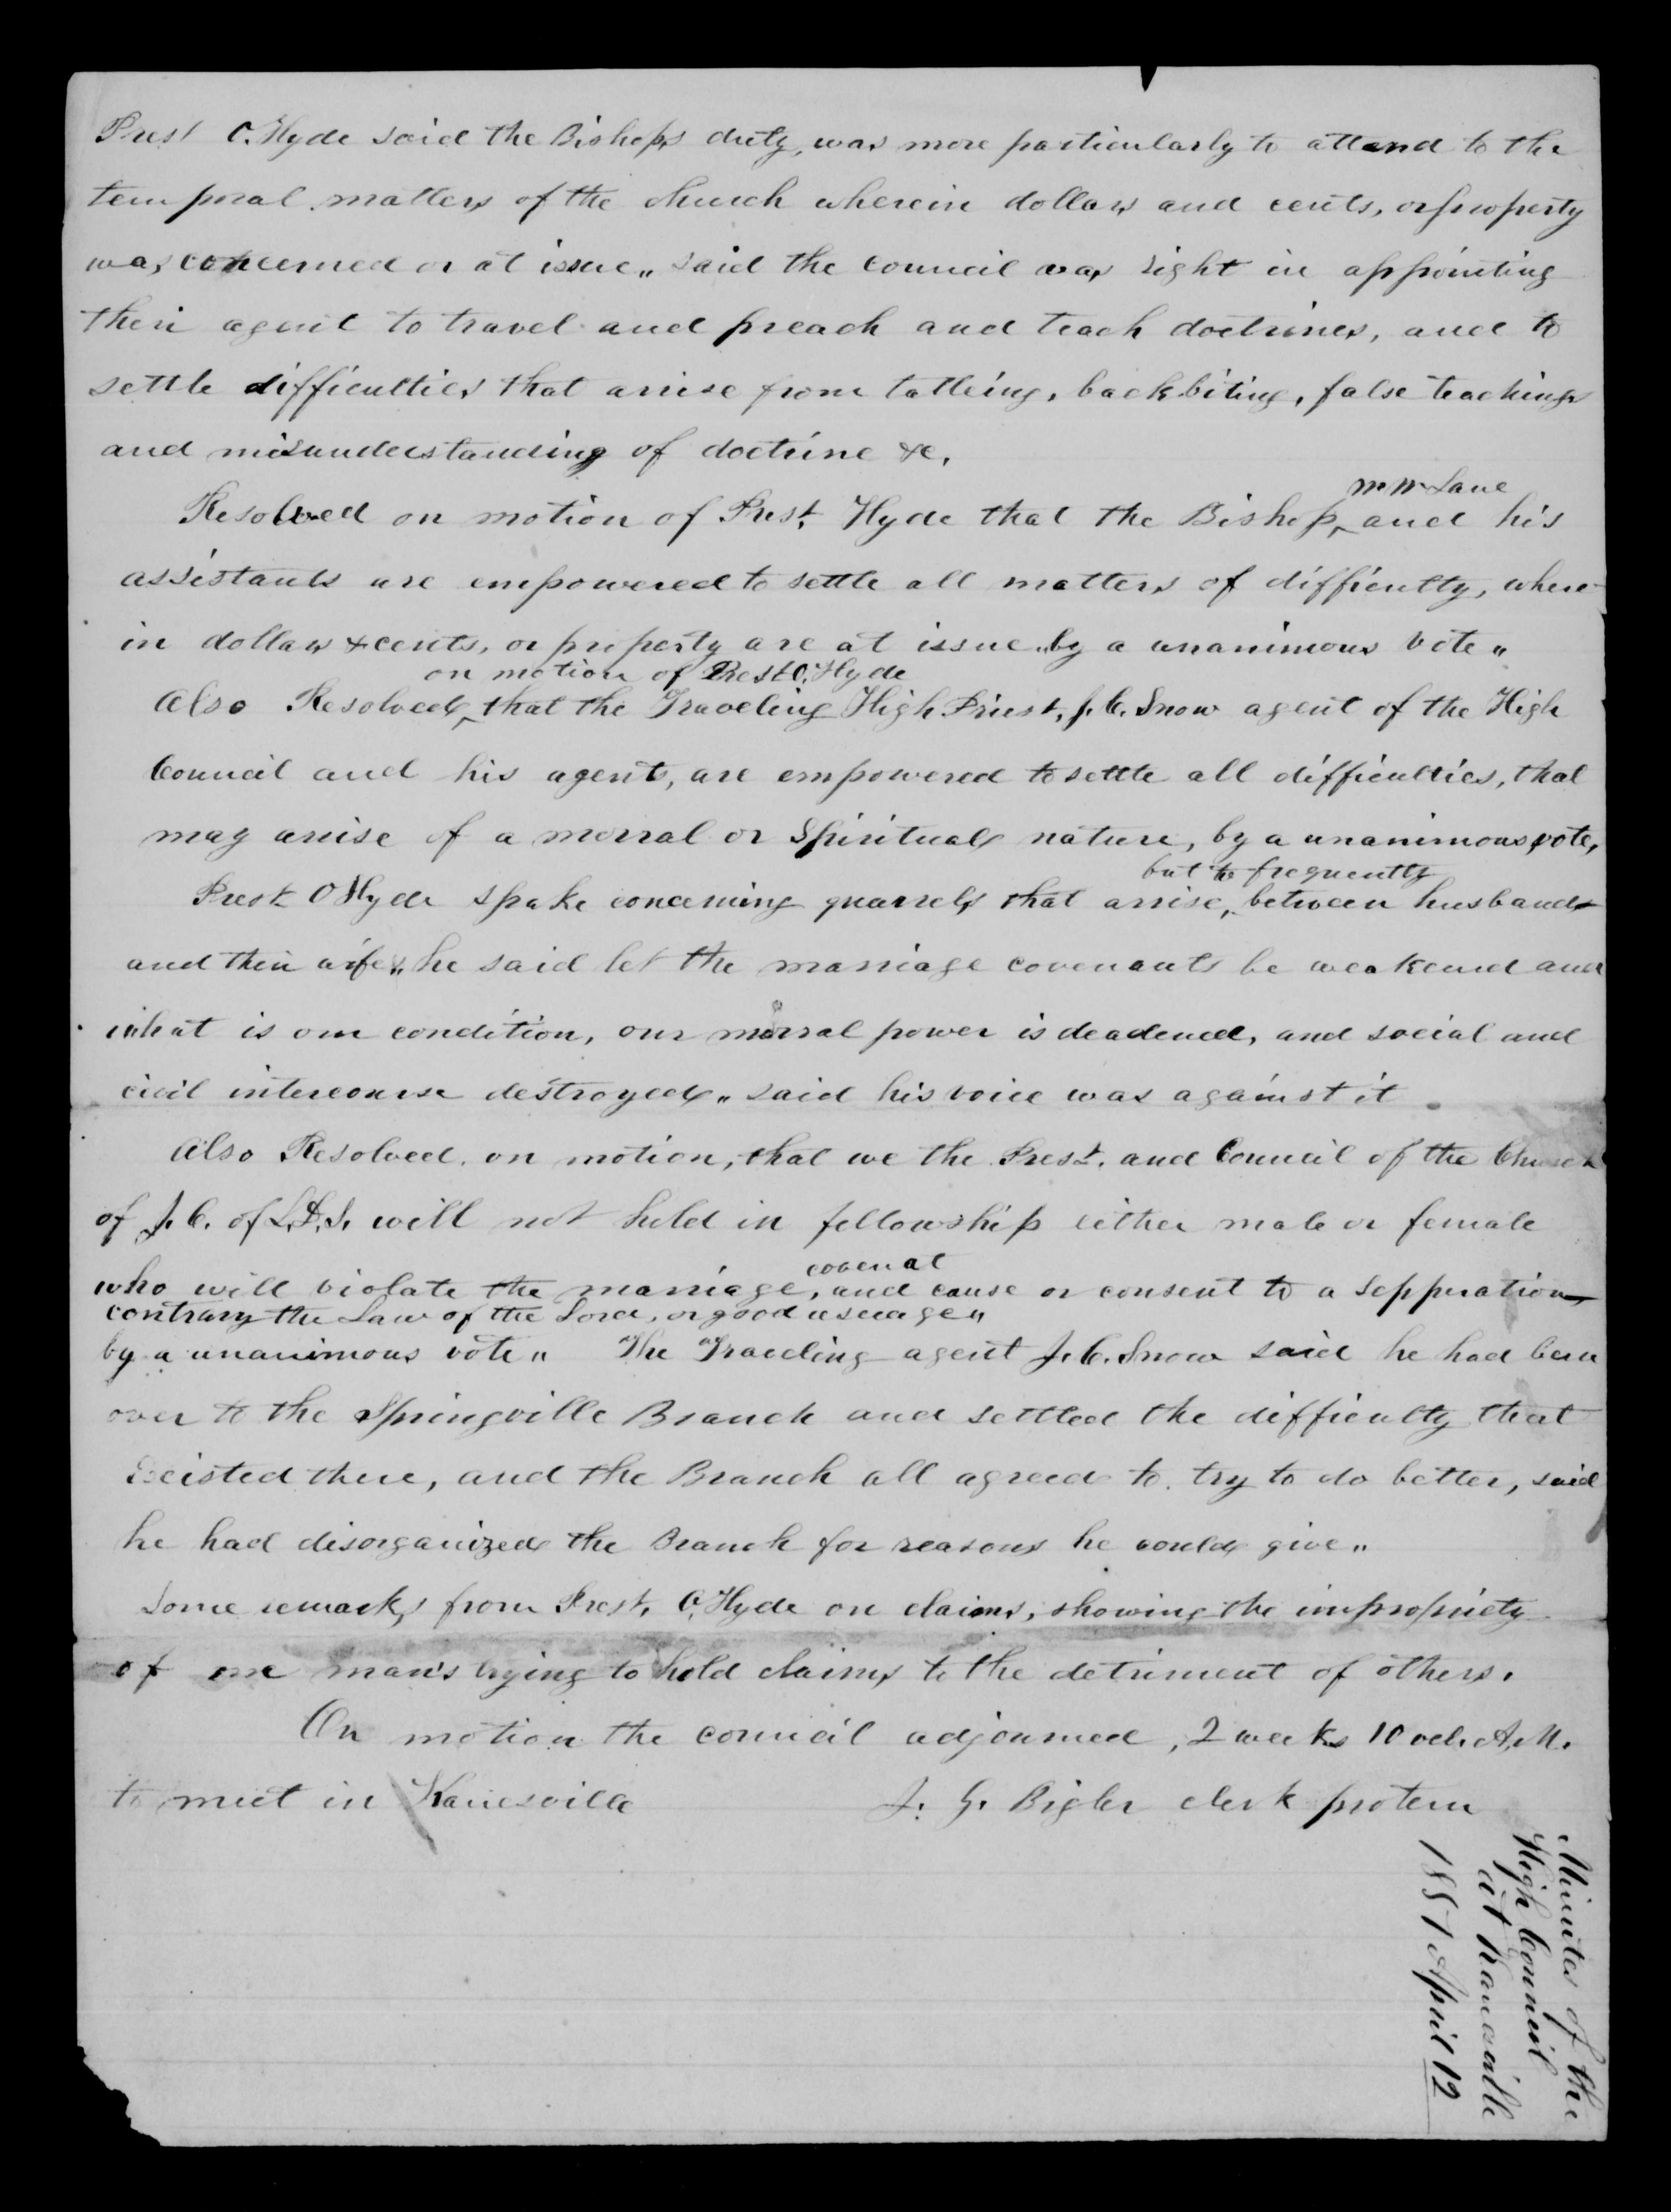 Prest O. Hyde said the Bishops duty, was more particularly to attend to the
temporal matters of the church wherein dollars and cents, or property
was concerned or at issue„ said the council was right in appointing
their agent to travel and preach and teach doctrines, and to
settle difficulties that arrise from tatleing, backbiting, false teachings
and misunderstanding of doctrine &c,
Wm McLane
Resolved on motion of Prest. Hyde that the Bishop, and his
assistants are empowered to settle all matters of difficulty, where-
in dollars & cents, or property are at issue, by a unanimous vote„
on motion of Prest O. Hyde
Also Resolved, that the Traveling High Priest, J. C. Snow agent of the High
Council and his agents, are empowered to settle all difficulties, that
may arrise of a morral or Spiritual nature, by a unanimous vote,
but to frequently
Prest O Hyde spake concerning quarrels that arrise, between husbands
and their wifes„ he said let the marriage covenants be weakened and
what is our condition, our morral power is deadened, and social and
civil intercourse destroyed„ said his voice was against it.
Also Resolved, on motion, that we the Prest. and Council of the Church
of J. C. of L. D. S. will not hold in fellowship either male or female
covenat
who will violate the marriage, and cause or consent to a Sepperation
contrary the Law of the Lord, or good useuage„
by a unanimous vote„ The Traveling agent J. C. Snow said he had been
over to the Springville Branch and settled the difficulty that
Excisted there, and the Branch all agreed to try to do better, said
he had disorganized the Branch for reasons he could give„
Some remarks from Prest. O. Hyde on claims, showing the impropriety
of one man's trying to hold claims to the detriment of others.
On motion the council adjourned, 2 weeks 10 ocl. A. M.
to meet in Kanesville J. G. Bigler clerk protem
Minutes of the
High Council
at Kanesville
1851 April 12